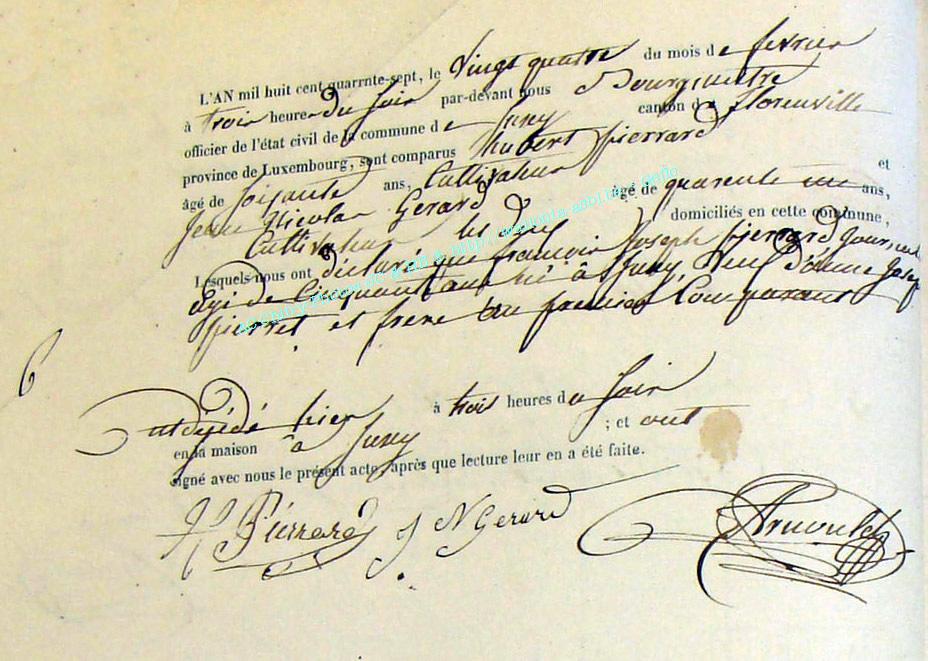 L'AN mil huit cent quarrnte-sept, le Vingt quatre du mois de fevrier
à trois heures du soir par-devant nous Bourgmestre
officier de l'état civil de la commune de Juny canton de florenville
province de Luxembourg, sont comparus hubert pierrard
âgé de soisante ans, Cultivateur et
Jean Nicolas Gerard âgé de quarente un ans,
Cultivateur les deux domiciliés en cette commune,
Lesquels nous ont déclaré que francois Joseph pierrard Jour,
agé de Cinquant ans né à Juny, Veuf d'anne Josep
pierret et frere du premier Comparant
6
est décédé hier à trois heures du soir
en la maison à Juny ; et ont
signé avec nous le présent acte, après que lecture leur en a été faite.
H Pierrard J N Gerard